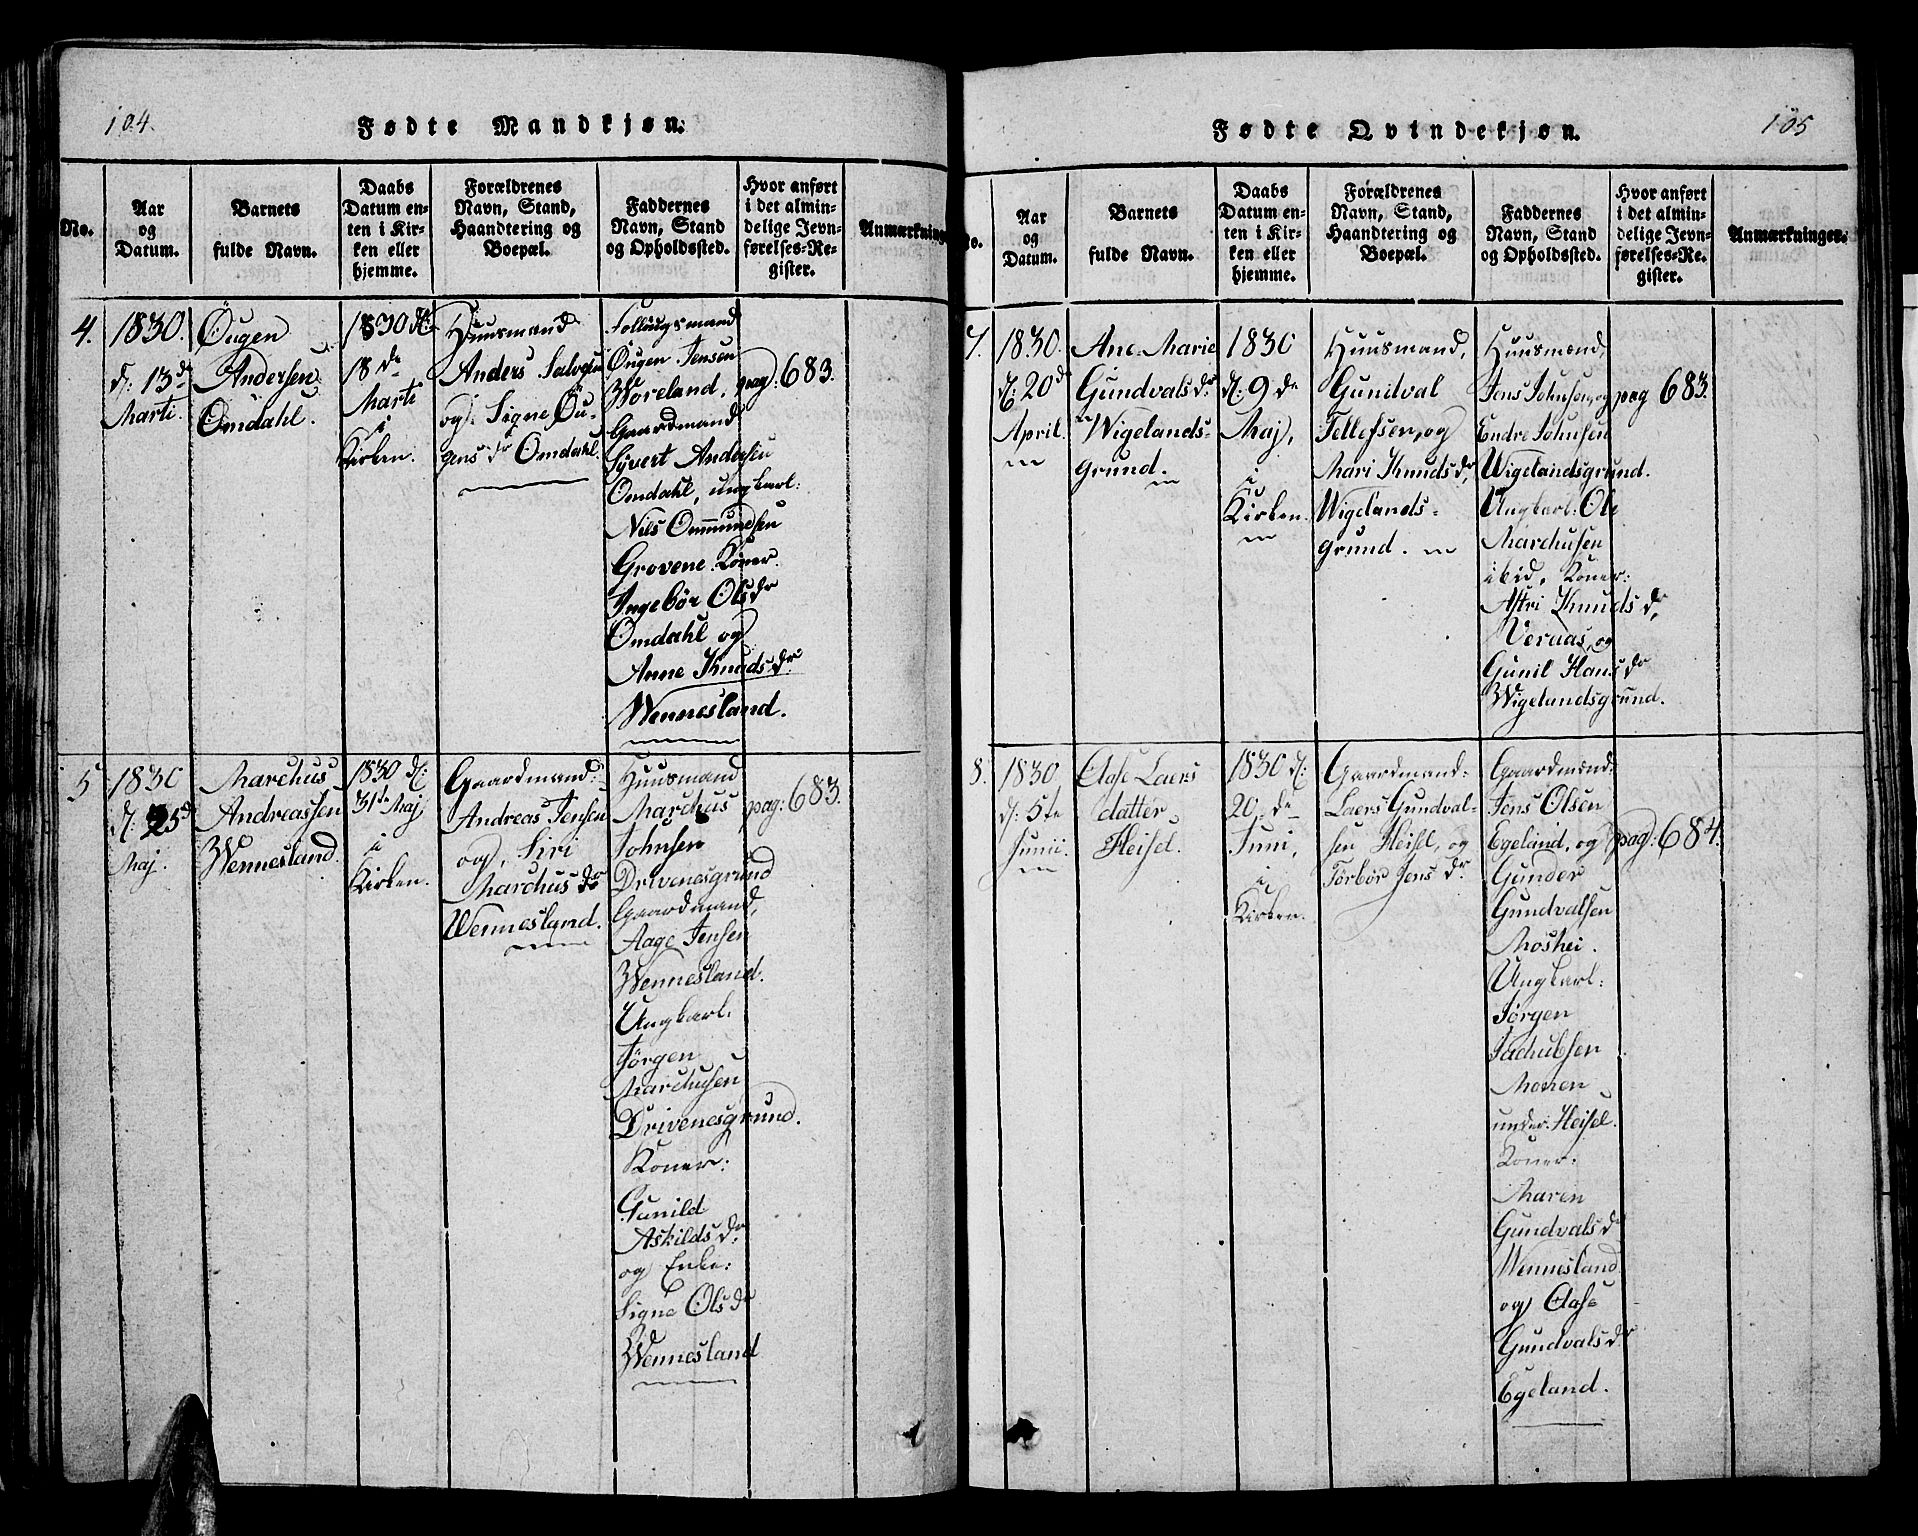 104.
Fødte Mandkjøn.
No.
Aar
og
Datum.
Barnets
fulde Navn.
Daabs
Datum en-
ten i Kir-
ken eller
hjemme.
Forældrenes
Navn, Stand,
Haandtering og
Boepæl.
Faddernes
Navn, Stand
og Opholdssted.
Hvor anført
i det almin-
delige Jevn-
førelses-Re-
gister.
Anmærkninge
4.
1830.
d: 13de
Marti.
Ougen
Andersen
Omdahl.
1830 d:
18de
Marti
i
Kirken.
Huusmand
Anders
og Signe Ou-
gens dr Omdahl.
Ougen Jensen
Woreland,
Gaardmand
Syvert Andersen
Omdahl, ungkarl:
Nils Ommundsen
Grovene. Koner.
Ingebør Ols dr
Omdahl og
Anne Knuds dr
Wennesland.
pag: 683.
5
1830
d: 25de
Maj.
Marchus
Andreassen
Wennesland.
1830 d:
31te Maj
i
Kirken.
Gaardmand:
Andreas Jensen
og, Siri
Marchus dr
Wennesland.
Huusmand
Marchus
Johnsen
Drivenesgrund
Gaardmand,
Aage Jensen
Wennesland.
Ungkarl:
Jørgen
Marchusen
Drivenesgrund.
Koner:
Gunild
Askilds dr
og Enke:
Signe Ols dr
Wennesland
pag: 683.
105
Fødte Qvindekjøn.
No.
Aar
og
Datum.
Barnets
fulde Navn.
Daabs
Datum en-
ten i Kir-
ken eller
hjemme.
Forældrenes
Navn, Stand,
Haandtering og
Boepæl.
Faddernes
Navn, Stand
og Opholdssted.
Hvor anført
i det almin-
delige Jevn-
førelses-Re-
gister.
Anmærkninger.
7.
1830.
d: 20de
April.
Ane Marie
Gundvals dr
Wigelands-
grund.
1830
d: 9de
Maj,
i
Kirken.
Huusmand,
Gundval
Tellefsen, og
Mari Knuds dr,
Wigelands-
grund.
Huusmænd,
Jens Johnsen, og
Endre Johnsen
Wigelandsgrund.
Ungkarl: Ole
Marchusen
ibid, Koner:
Astri Knuds dr,
Veraas, og
Gunil Hans dr
Wigelandsgrund.
pag 683.
8.
1830
d: 5te
Junii.
Aase Laers
datter
Heisel.
1830 d:
20de
Juni,
i
Kirken.
Gaardmand:
Laers Gundval-
sen Heisel, og
Torbør Jens dr
Gaardmænd:
Jens Olsen
Egeland, og
Gunder
Gundvalsen
Moshei.
Ungkarl:
Jørgen
Jachubsen
Monen
under Heisel.
Koner:
Maren
Gundvals dr
Wennesland
og Aase
Gundvals dr
Egeland.
pag: 684.